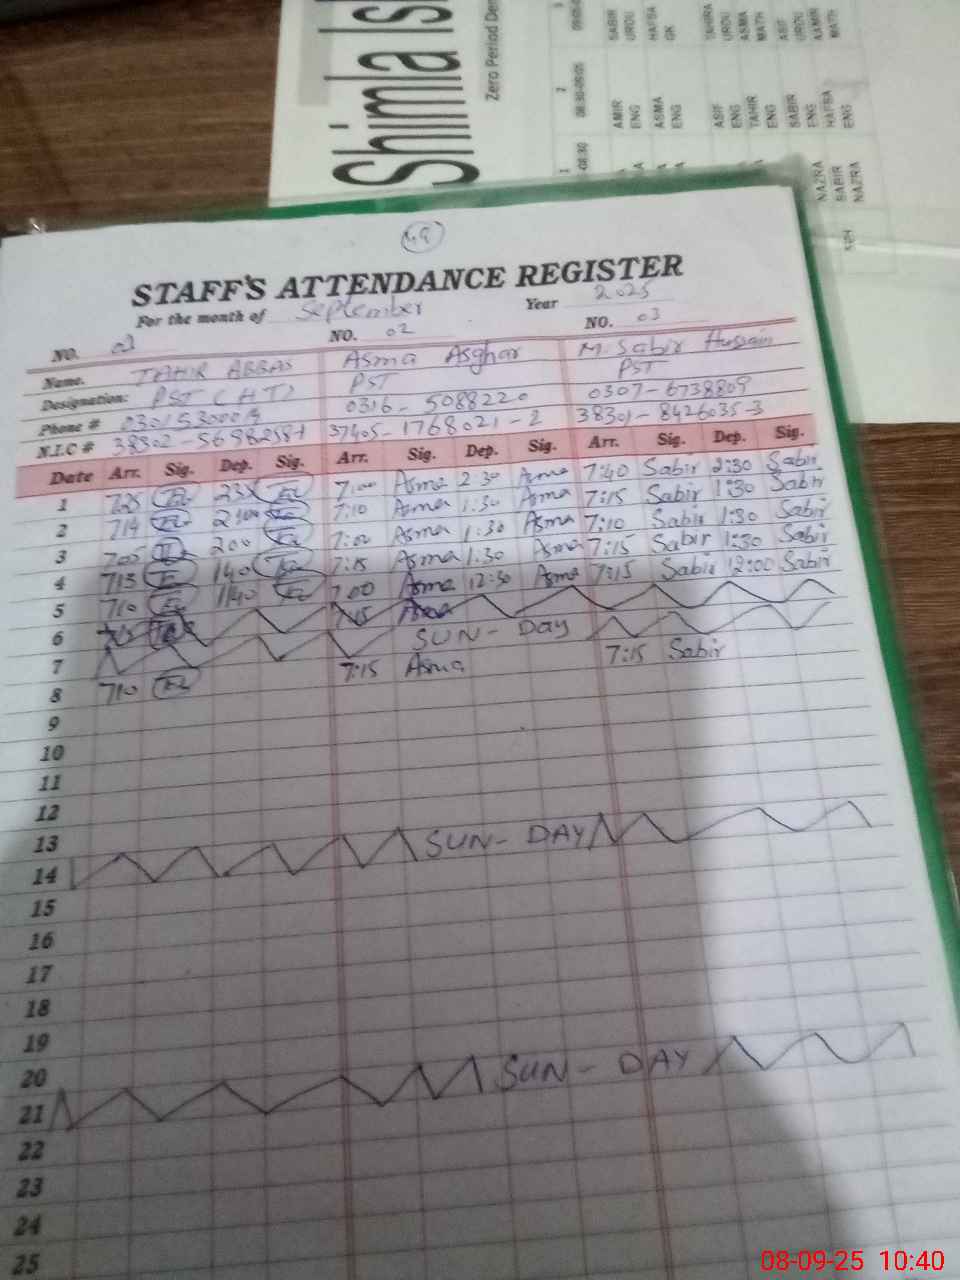 Shimla Isl
Zero Period Der
1 2 3
-08:30 08:30-09:05
AMIR ENG SABIR URDU
ASMA ENG HAFSA GK
ASIF ENG SAHIRA URDU
TAHIR ENG ASMA MATH
NAZRA SABIR ENG ASIF URDU
SABIR NAZRA HAFSA ENG AAMIR MATH
STAFF'S ATTENDANCE REGISTER
For the month of September Year 2025
NO. 03 NO. 02 NO. 03
Name. TAHIR ABBAS Asma Asghar M. Sabir Hussain
Designation: PST (HT) PST PST
Phone # 0316-5088220 0307-6738809
N.I.C # 37405-1768021-2 38301-8426035-3
Date Arr. Sig. Dep. Sig. Arr. Sig. Dep. Sig. Arr. Sig. Dep. Sig.
1 725 7:00 Asma 2:30 Asma 7:40 Sabir 2:30 Sabir
2 714 200 7:10 Asma 1:30 Asma 7:15 Sabir 1:30 Sabir
3 705 200 7:00 Asma 1:30 Asma 7:10 Sabir 1:30 Sabir
4 713 140 7:15 Asma 1:30 Asma 7:15 Sabir 1:30 Sabir
5 710 1140 7:00 Asma 12:30 Asma 7:15 Sabir 12:00 Sabir
6
7 SUN-Day
8 710 7:15 Asma 7:15 Sabir
9
10
11
12
13
14 SUN-DAY
15
16
17
18
19
20
21 SUN-DAY
22
23
24
25
08-09-25 10:40